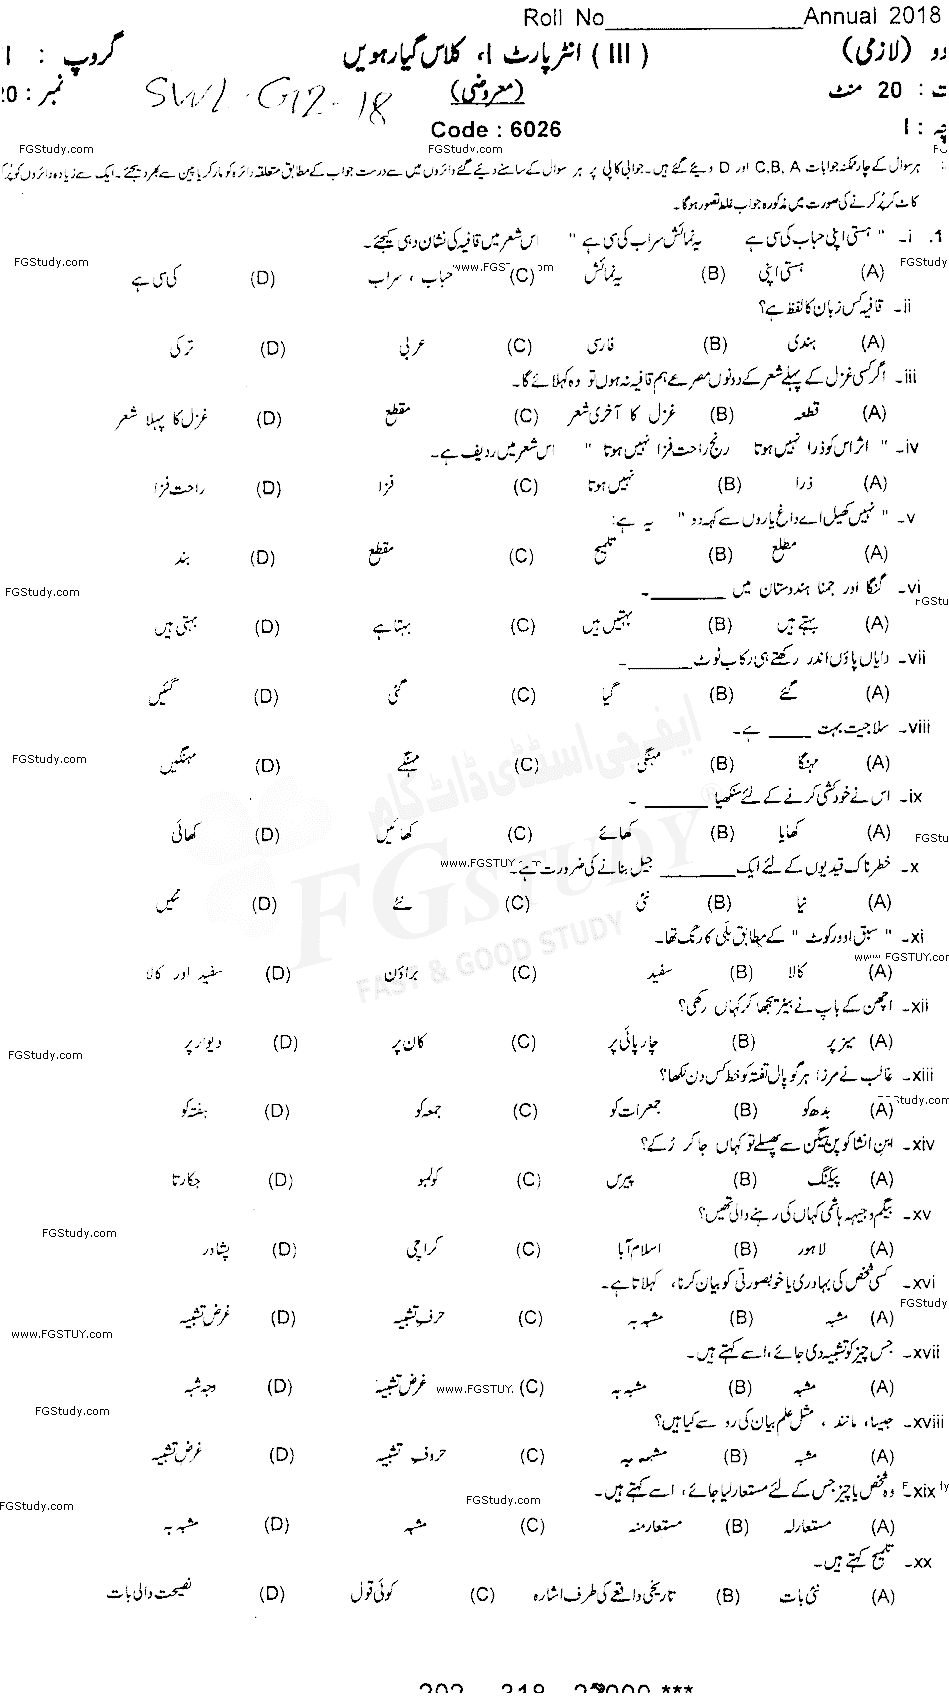 Roll No______________Annual 2018
دو (لازمی) ( III ) انٹر پارٹ I، کلاس گیارھویں گروپ : I
ت : 20 منٹ (معروضی) SWL-G12-18 نمبر : 20
چہ : I Code : 6026
FGStudy.com FGStudy.com FG
ہر سوال کے چار ممکنہ جوابات C,B, A اور D دیئے گئے ہیں۔ جوابی کاپی پر ہر سوال کے سامنے دیئے گئے دائروں میں سے درست جواب کے مطابق متعلقہ دائرہ کو مارکر یا پین سے بھر دیجئے۔ ایک سے زیادہ دائروں کو پُر کرنے یا
کاٹ کر پُر کرنے کی صورت میں مذکورہ جواب غلط تصور ہوگا۔
1. i۔ " ہستی اپنی حباب کی سی ہے یہ نمائش سراب کی سی ہے " اس شعر میں قافیہ کی نشان دہی کیجئے۔
FGStudy.com www.FGST om FGStudy
(A) ہستی اپنی (B) یہ نمائش (C) حباب ، سراب (D) کی سی ہے
ii۔ قافیہ کس زبان کا لفظ ہے؟
(A) ہندی (B) فارسی (C) عربی (D) ترکی
iii۔ اگر کسی غزل کے پہلے شعر کے دونوں مصرعے ہم قافیہ نہ ہوں تو وہ کہلائے گا۔
(A) قطعہ (B) غزل کا آخری شعر (C) مقطع (D) غزل کا پہلا شعر
iv۔ " اثر اس کو ذرا نہیں ہوتا رنج راحت فزا نہیں ہوتا " اس شعر میں ردیف ہے۔
(A) ذرا (B) نہیں ہوتا (C) فزا (D) راحت فزا
v۔ " نہیں کھیل اے داغ یاروں سے کہہ دو " یہ ہے:
(A) مطلع (B) تلمیح (C) مقطع (D) بند
FGStudy.com FGStu
vi۔ گنگا اور جمنا ہندوستان میں ________۔
(A) بہتے ہیں (B) بہتیں ہیں (C) بہتا ہے (D) بہتی ہیں
vii۔ دایاں پاؤں اندر رکھتے ہی رکاب ٹوٹ ______۔
(A) گئے (B) گیا (C) گئی (D) گئیں
viii۔ سلاجیت بہت ____ ہے۔
FGStudy.com
(A) مہنگا (B) مہنگی (C) مہنگے (D) مہنگیں
ix۔ اس نے خودکشی کرنے کے لئے سنکھیا ______ ۔
(A) کھایا (B) کھائے (C) کھائیں (D) کھائی
FGStu
x۔ خطرناک قیدیوں کے لئے ایک ________ جیل بنانے کی ضرورت ہے۔
www.FGSTUY m
(A) نیا (B) نئی (C) نئے (D) نئیں
ایف جی اسٹڈی ڈاٹ کام
FGSTUDY
FAST & GOOD STUDY
xi۔ " سبق اوورکوٹ " کے مطابق بلی کا رنگ تھا۔
www.FGSTUY.com
(A) کالا (B) سفید (C) براؤن (D) سفید اور کالا
xii۔ اچھن کے باپ نے بیڑی بجھا کر کہاں رکھی؟
(A) میز پر (B) چارپائی پر (C) کان پر (D) دیوار پر
FGStudy.com
xiii۔ غالب نے مرزا ہرگوپال تفتہ کو خط کس دن لکھا؟
Study.com
(A) بدھ کو (B) جمعرات کو (C) جمعہ کو (D) ہفتہ کو
xiv۔ ابن انشا کو پن پیگن سے پھسلے تو کہاں جا کر رُکے؟
(A) پیکنگ (B) پیرس (C) کولمبو (D) جکارتا
xv۔ بیگم وجیہہ ہاشمی کہاں کی رہنے والی تھیں؟
FGStudy.com
(A) لاہور (B) اسلام آباد (C) کراچی (D) پشاور
xvi۔ کسی شخص کی بہادری یا خوبصورتی کو بیان کرنا، کہلاتا ہے۔
FGStudy
(A) مشبہ (B) مشبہ بہ (C) حرف تشبیہ (D) غرض تشبیہ
www.FGSTUY.com
xvii۔ جس چیز کو تشبیہ دی جائے، اسے کہتے ہیں۔
(A) مشبہ (B) مشبہ بہ (C) غرض تشبیہ (D) وجہ شبہ
www.FGSTUY.
FGStudy.com
xviii۔ جیسا، مانند ، مثل علم بیان کی رو سے کیا ہیں؟
(A) مشبہ (B) مشبہ بہ (C) حروف تشبیہ (D) غرض تشبیہ
xix۔ وہ شخص یا چیز جس کے لئے مستعار لیا جائے، اسے کہتے ہیں۔
FGStudy.com FGStudy.com
(A) مستعارلہ (B) مستعارمنہ (C) مشبہ (D) مشبہ بہ
xx۔ تلمیح کہتے ہیں۔
(A) نئی بات (B) تاریخی واقعے کی طرف اشارہ (C) کوئی قول (D) نصیحت والی بات